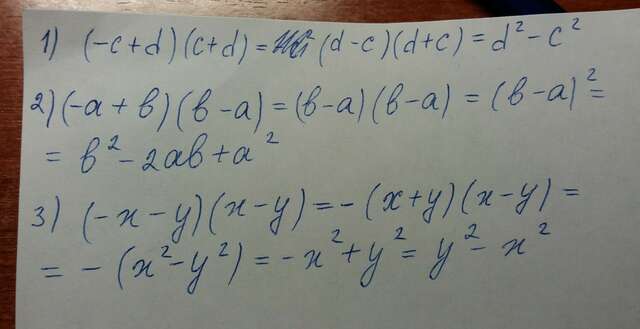 1) (-c+d)(c+d) = (d-c)(d+c) = d² - c²
2) (-a + в)(в - a) = (в-a)(в-a) = (в-a)² =
= в² - 2aв + a²
3) (-x - y)(x - y) = - (x+y)(x-y) =
= - (x² - y²) = -x² + y² = y² - x²